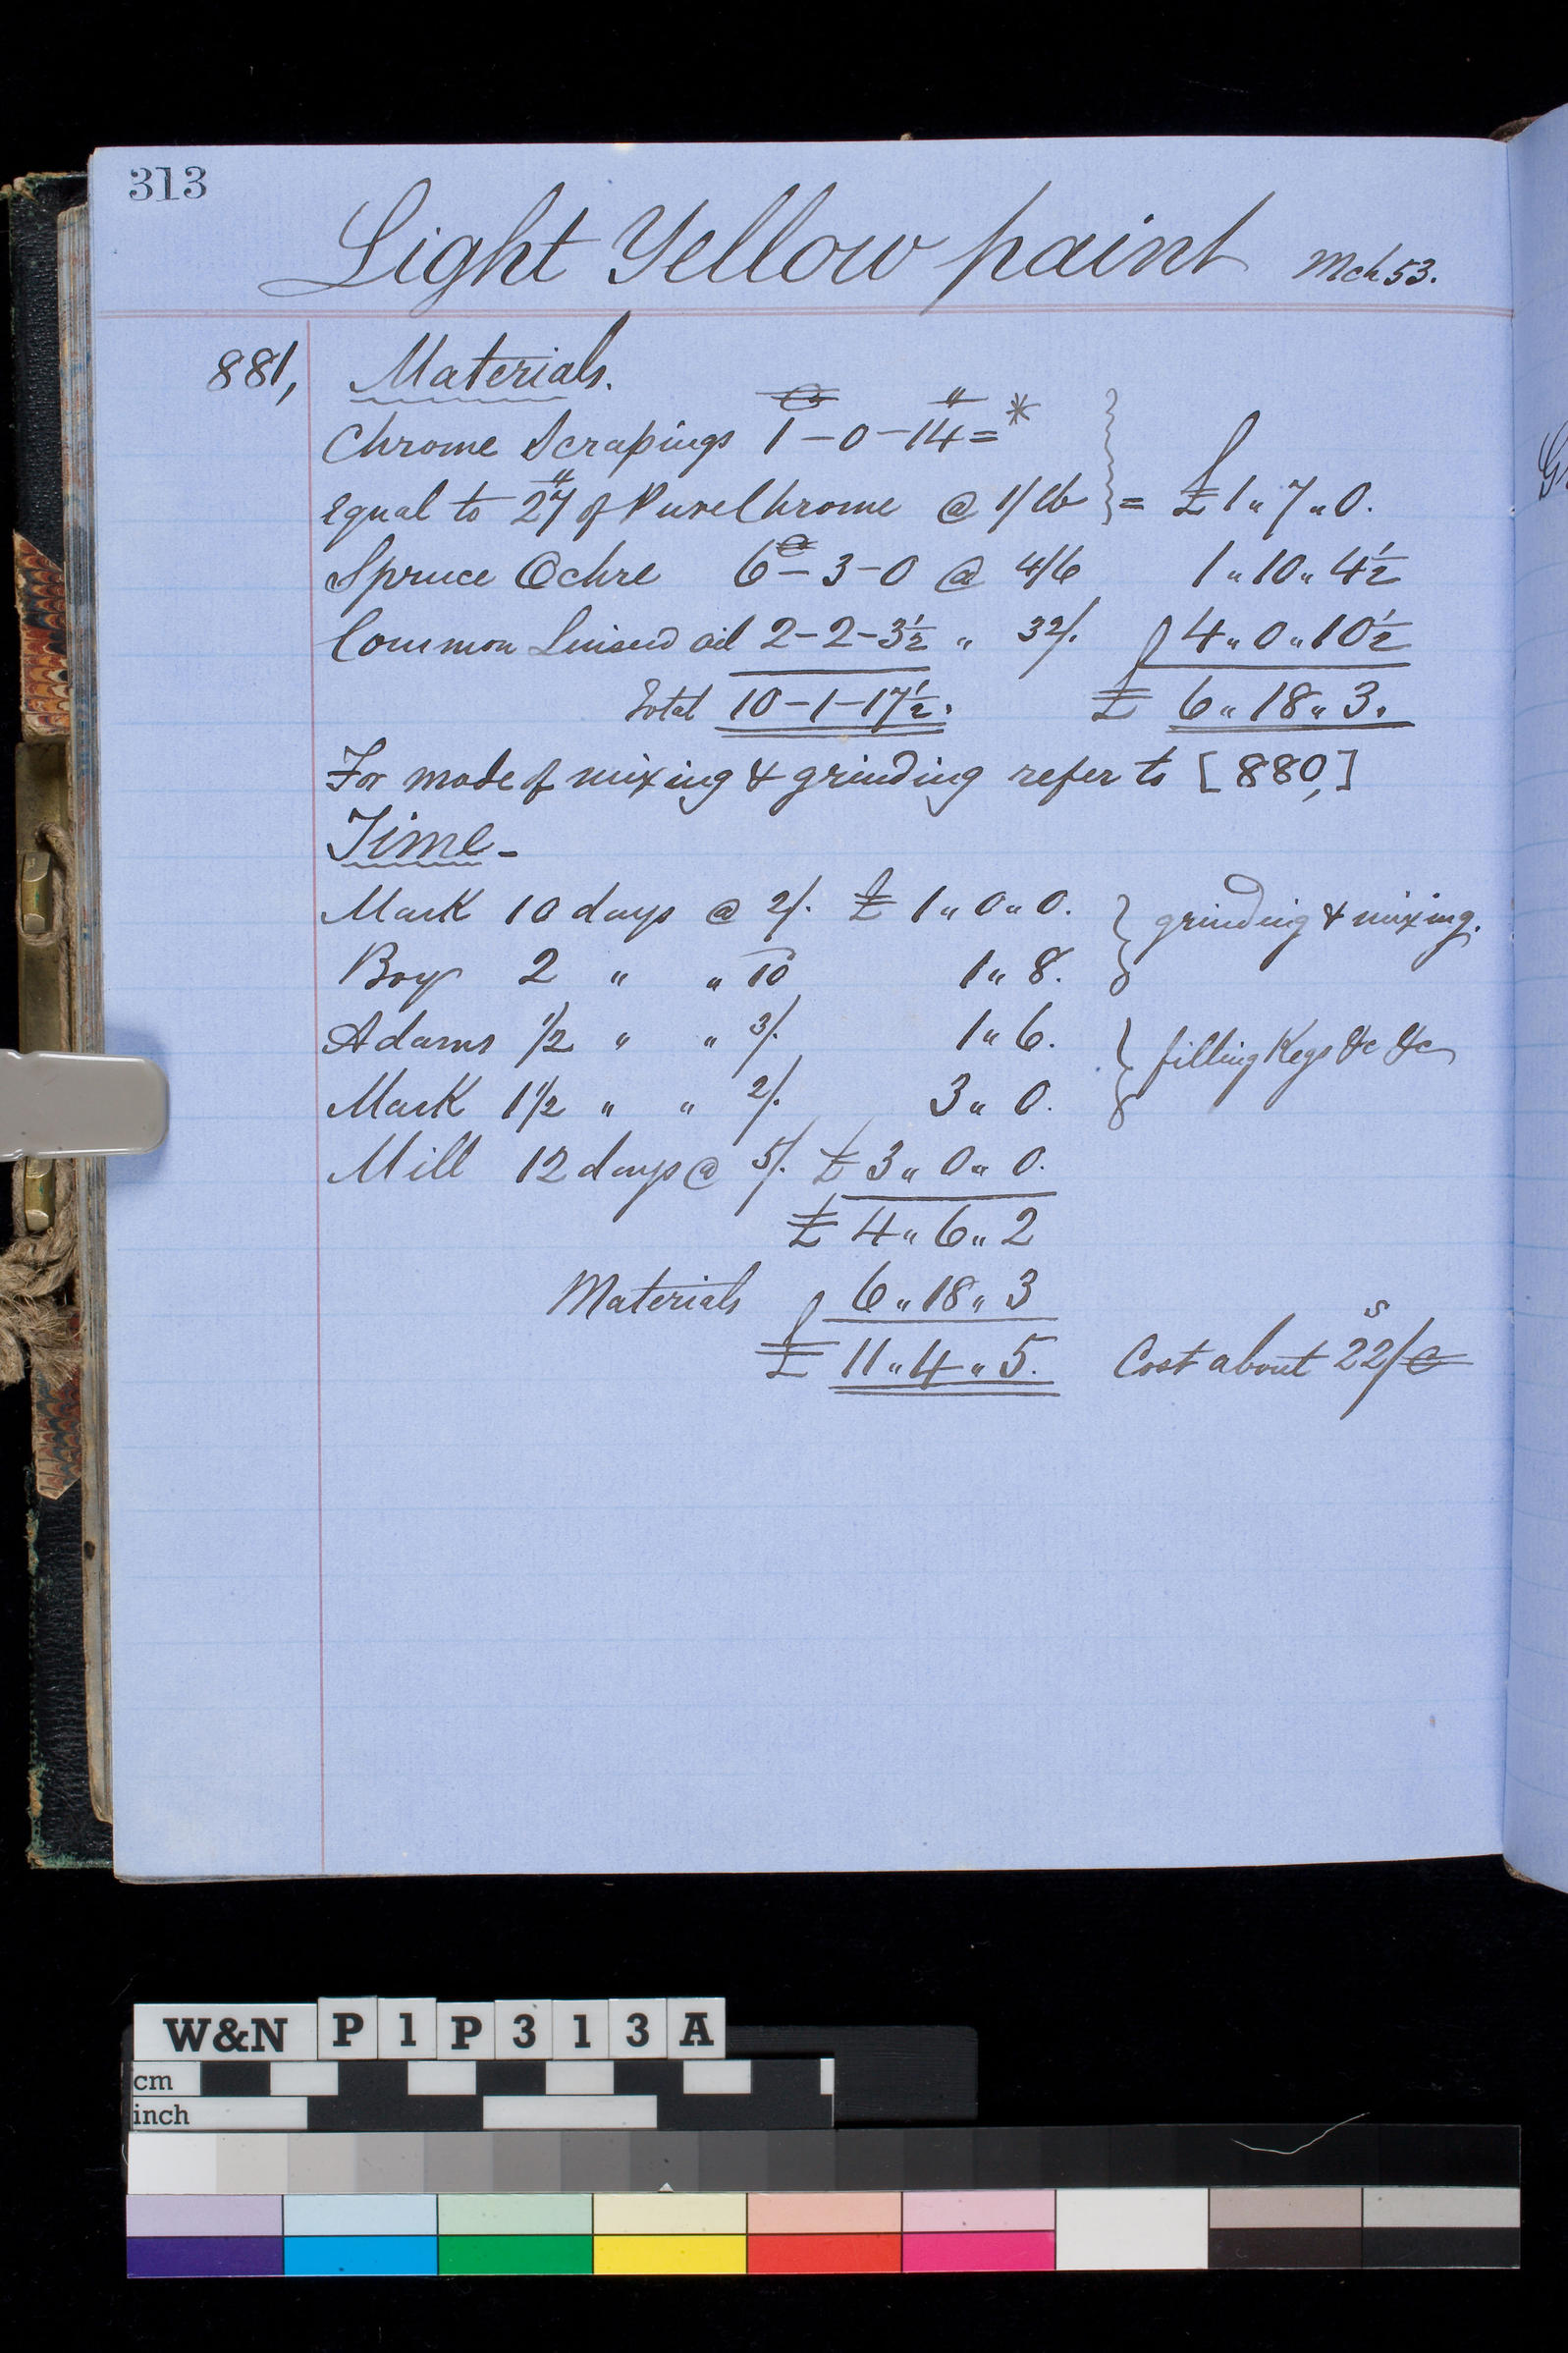 313
Light Yellow paint Mch 53.
881, Materials.
Chrome Scrapings 1 - 0 - 14 = *
equal to 27 of Pure Chrome @ 1/lb } = £ 1 " 7 " 0.
Spruce Ochre 6 - 3 - 0 @ 4/6 1 " 10 " 4½
Common Linseed oil 2 - 2 - 3½ " 32/. 4 " 0 " 10½
Total 10 - 1 - 17½. £ 6 " 18 " 3.
For mode of mixing & grinding refer to [880,]
Time -
Mark 10 days @ 2/. £ 1 " 0 " 0. } grinding & mixing.
Boy 2 " " 10 1 " 8.
Adams ½ " " 3/. 1 " 6. } filling Kegs &c &c
Mark 1½ " " 2/. 3 " 0.
Mill 12 days @ 5/. £ 3 " 0 " 0.
£ 4 " 6 " 2
Materials 6 " 18 " 3
£ 11 " 4 " 5. Cost about 22s/C
W&N P1P313A
cm
inch